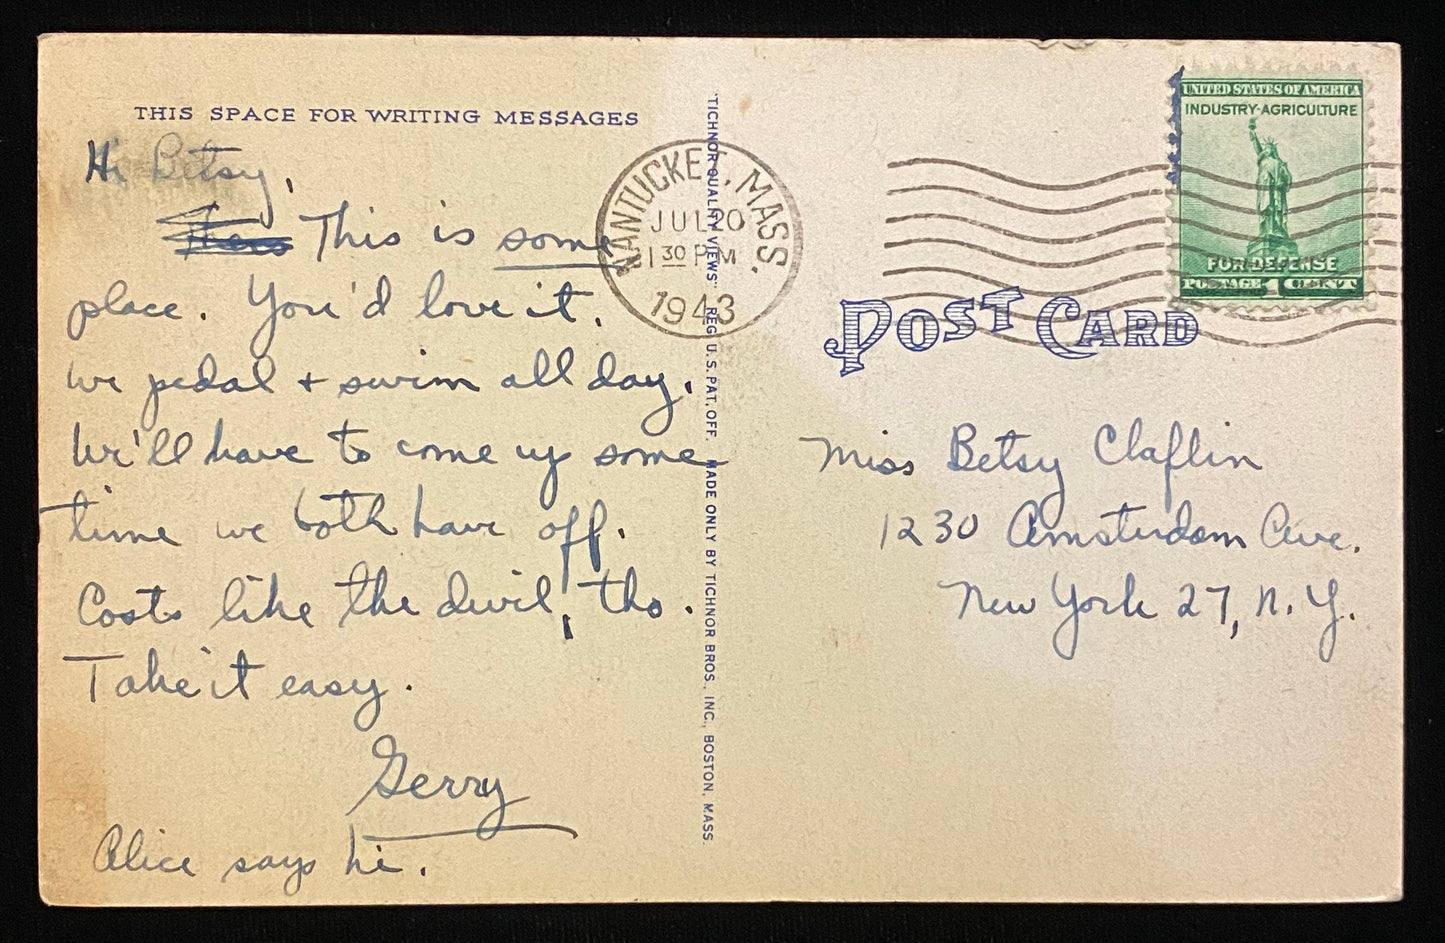 THIS SPACE FOR WRITING MESSAGES
Hi Betsy,
This is some
place. You'd love it.
We pedal + swim all day.
We'll have to come up some
time we both have off.
Costs like the devil, tho.
Take it easy.
Gerry
Alice says hi.
"TICHNOR QUALITY VIEWS" REG. U.S. PAT. OFF. MADE ONLY BY TICHNOR BROS., INC., BOSTON, MASS.
NANTUCKET, MASS.
JUL 20
1 30 PM
1943
UNITED STATES OF AMERICA
INDUSTRY-AGRICULTURE
FOR DEFENSE
POSTAGE 1 CENT
POST CARD
Miss Betsy Claflin
1230 Amsterdam Ave.
New York 27, N.Y.